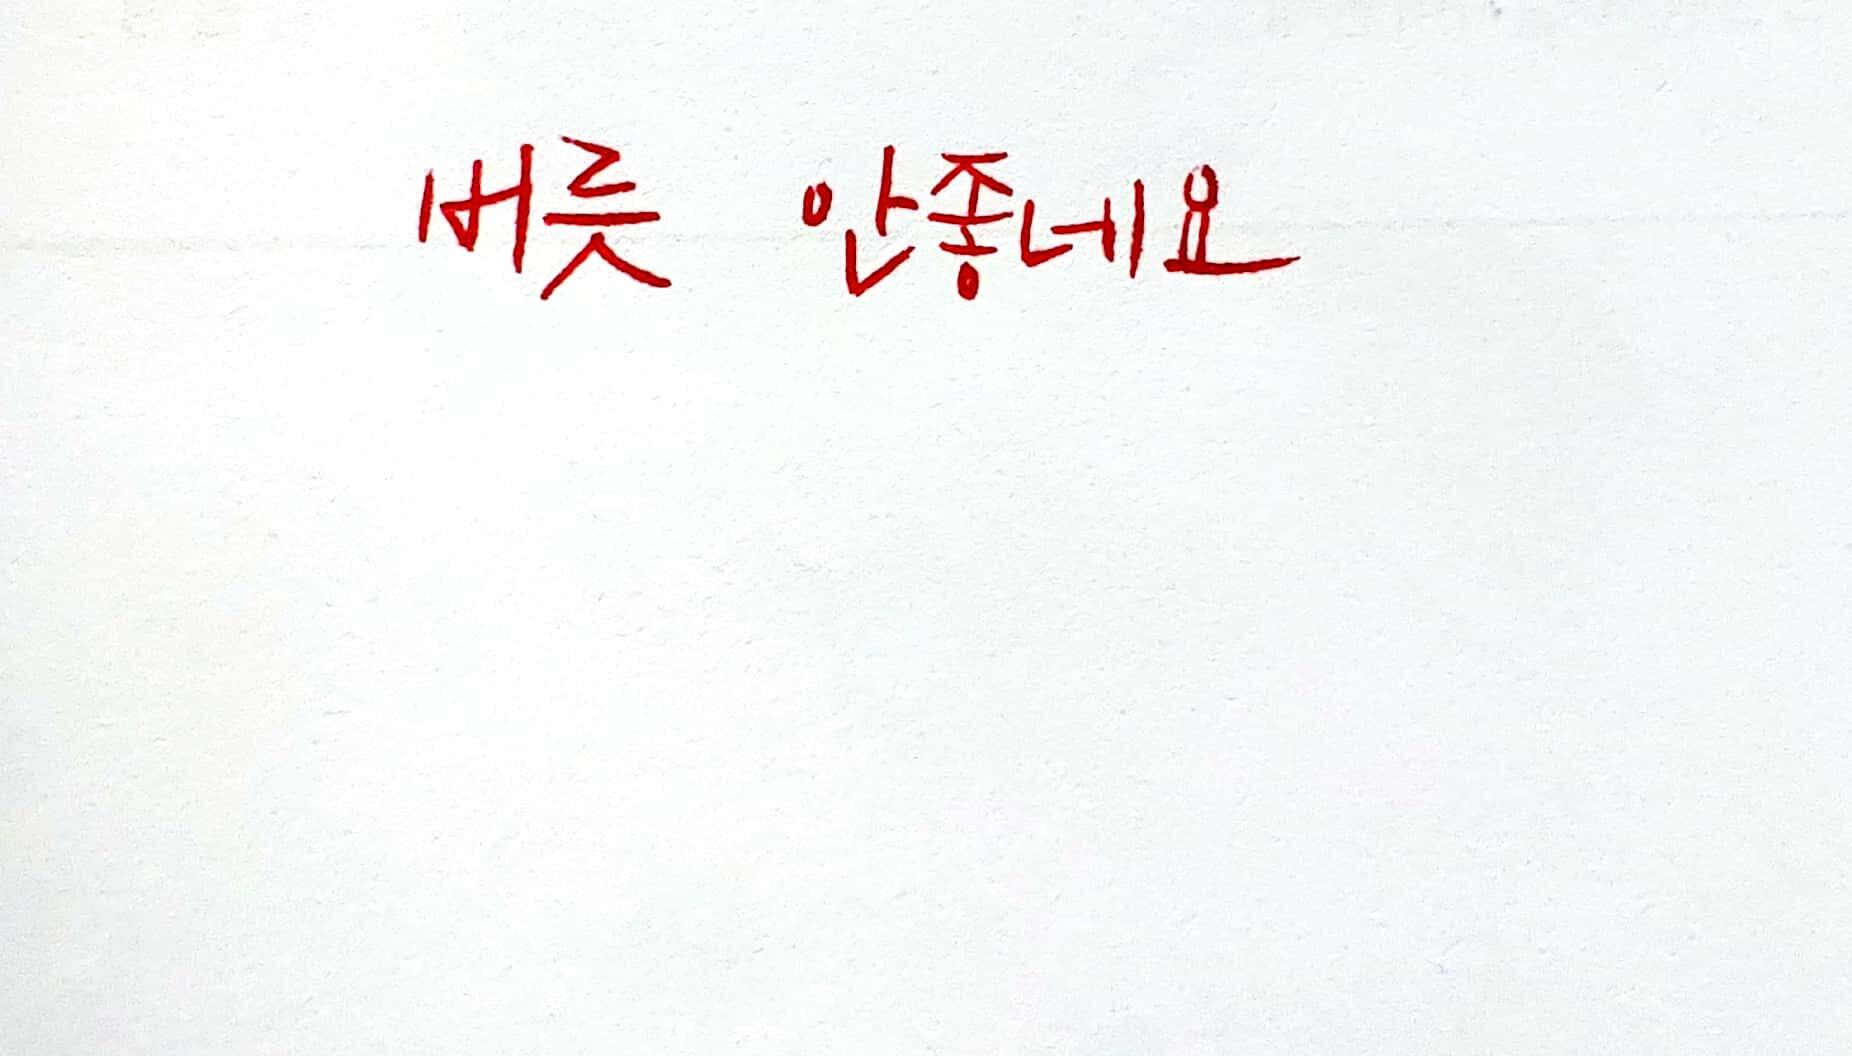 버릇 안종네요